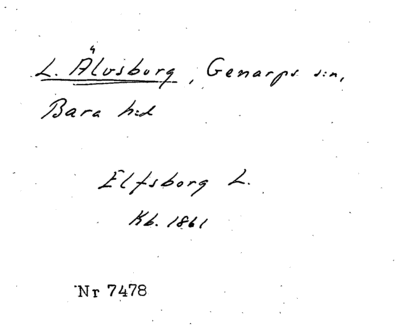 L. Älvsborg, Genarps s:n,
Bara h:d
Elfsborg L.
Kb. 1861
Nr 7478